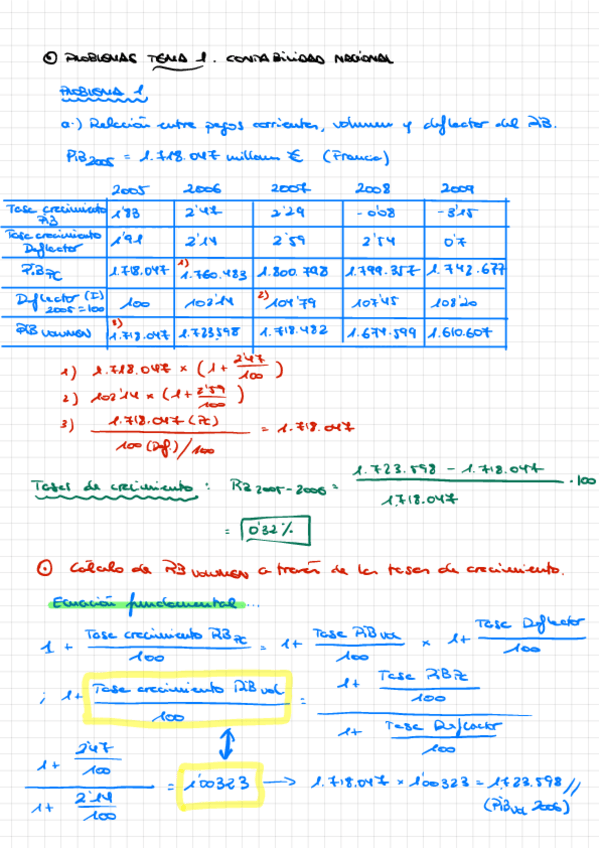 ⊙ PROBLEMAS TEMA 1. CONTABILIDAD NACIONAL
PROBLEMA 1
a.) Relación entre pagos corrientes, volumen y deflactor del PIB.
PIB2005 = 1.718.047 millones € (Francia)
2005 2006 2007 2008 2009
Tasa crecimiento PIB 1'83 2'47 2'29 -0'08 -3'15
Tasa crecimiento Deflactor 1'91 2'14 2'59 2'54 0'7
PIB PC 1.718.047 1) 1.760.483 1.800.798 1.799.357 1.742.677
Deflector (I) 2005=100 100 102'14 2) 104'79 107'45 108'20
PIB VOLUMEN 3) 1.718.047 1.723.598 1.718.482 1.674.599 1.610.607
1) 1.718.047 × (1 + 2'47/100)
2) 102'14 × (1 + 2'59/100)
3) 1.718.047 (PC) / 100 (Def.)/100 = 1.718.047
Tases de crecimiento : PIB 2005-2006 = 1.723.598 - 1.718.047 / 1.718.047 · 100
= 0'32 %
⊙ Cálculo de PIB VOLUMEN a través de las tasas de crecimiento.
Ecuación fundamental ...
1 + Tasa crecimiento PIB PC / 100 = 1 + Tasa PIB VOL / 100 × 1 + Tasa Deflactor / 100
; 1 + Tasa crecimiento PIB VOL / 100 = 1 + Tasa PIB PC / 100 / 1 + Tasa Deflactor / 100
1 + 2'47/100 / 1 + 2'14/100 = 1'00323 → 1.718.047 × 1'00323 = 1.723.598 //
(PIB VOL 2006)